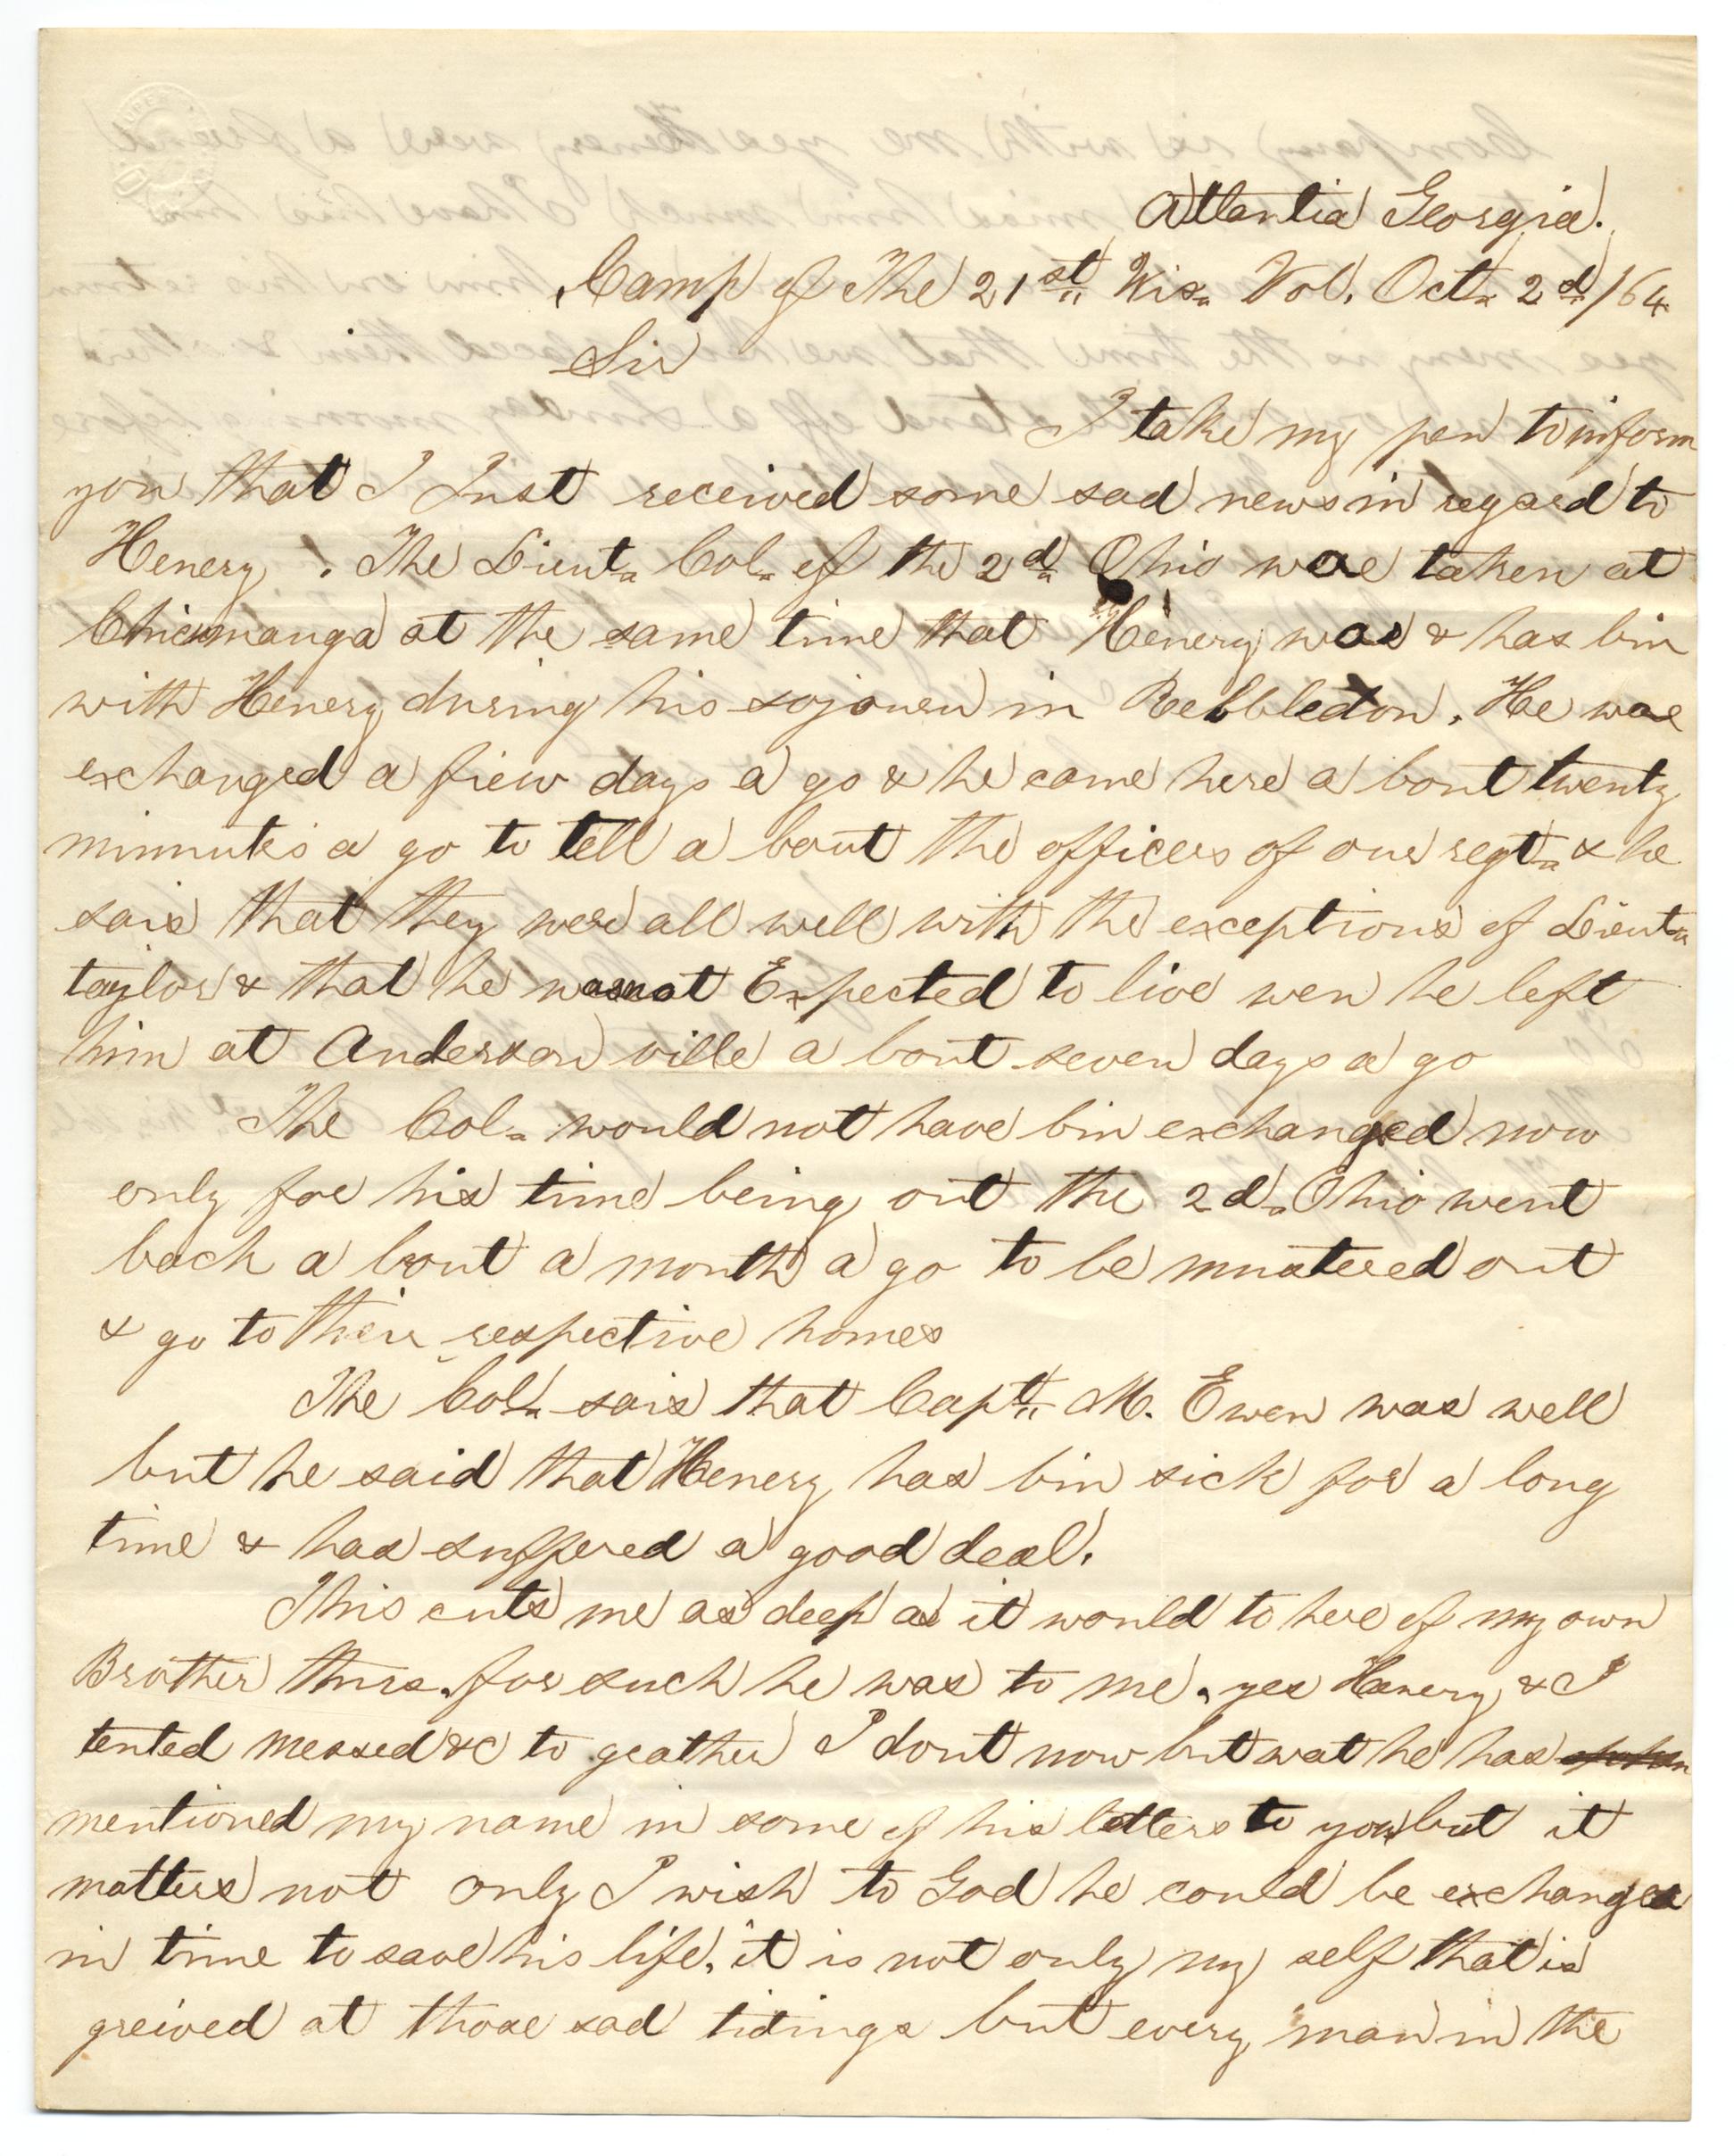 Atlantia Georgia.
Camp of The 21st Wis. Vol. Oct. 2d /64
Sir
I take my pen to inform
you that I Just received some sad news in regard to
Henery . The Lieut. Col. of the 2d Ohio was taken at
Chicamauga at the same time that Henery was & has bin
with Henery during his sojourn in Rebbledon. He was
exchanged a fiew days a go & he came here a bout twenty
minnutes a go to tell a bout the officers of our regt. & he
sais that they were all well with the exceptions of Lieut.
taylor & that he was not Expected to live wen he left
him at Anderson ville a bout seven days a go
The Col. would not have bin exchanged now
only for his time being out the 2d. Ohio went
back a bout a month a go to be mustered out
& go to their respective homes
The Col. sais that Capt. M. Ewen was well
but he said that Henery has bin sick for a long
time & has suffered a good deal.
This cuts me as deep as it would to here of my own
Brother thus. for such he was to me. yes Henery & I
tented messed &c to geather I dont now but wat he has
mentioned my name in some of his letters to you but it
matters not only I wish to God he could be exchanged
in time to save his life. it is not only my self that is
greived at those sad tidings but every man in the